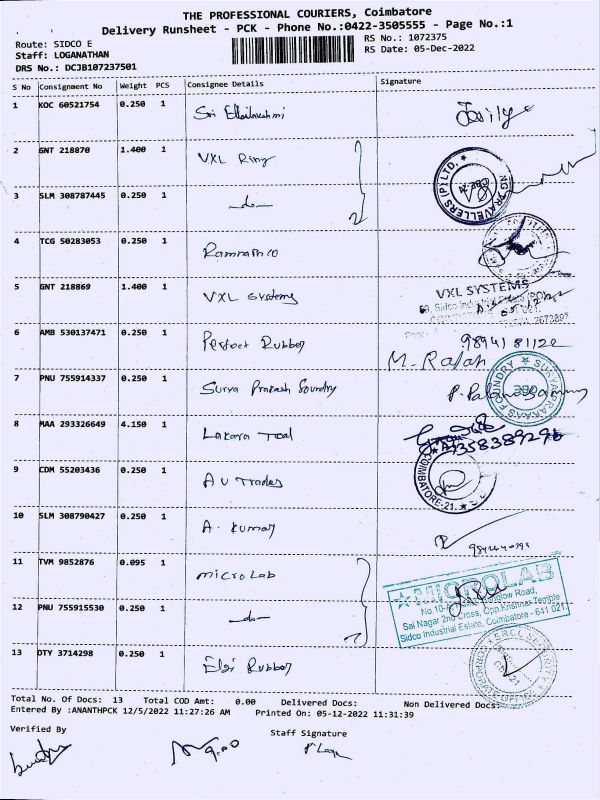 THE PROFESSIONAL COURIERS, Coimbatore
Delivery Runsheet - PCK - Phone No.:0422-3505555 - Page No.:1
Route: SIDCO E
RS No.: 1072375
Staff: LOGANATHAN
RS Date: 05-Dec-2022
DRS No.: DCJB107237501
S No Consignment No Weight PCS Consignee Details Signature
1 KOC 60521754 0.250 1 Sri
2 GNT 218870 1.400 1 VXL Ring
TRAVELLERS (P) LTD,
3 SLM 308787445 0.250 1 -do-
4 TCG 50283053 0.250 1
5 GNT 218869 1.400 1 VXL Systems
VXL SYSTEMS
59, Sidco Industrial
6 AMB 530137471 0.250 1 Perfect Rubber 9894181122
M. Rajan
7 PNU 755914337 0.250 1 Surya Prakash foundry
8 MAA 293326649 4.150 1 Lakara Tool
COIMBATORE-21.
9 CDM 55203436 0.250 1 A V Traders
10 SLM 308790427 0.250 1 A. Kumar
11 TVM 9852876 0.095 1 micro Lab
MICROLAB
Sai Nagar 2nd Cross, Opp.Krishnar Temple
Sidco Industrial Estate, Coimbatore - 641 021
12 PNU 755915530 0.250 1 -do-
13 DTY 3714298 0.250 1 Elgi Rubber
Total No. Of Docs: 13 Total COD Amt: 0.00 Delivered Docs: Non Delivered Docs:
Entered By :ANANTHPCK 12/5/2022 11:27:26 AM Printed On: 05-12-2022 11:31:39
Verified By Staff Signature